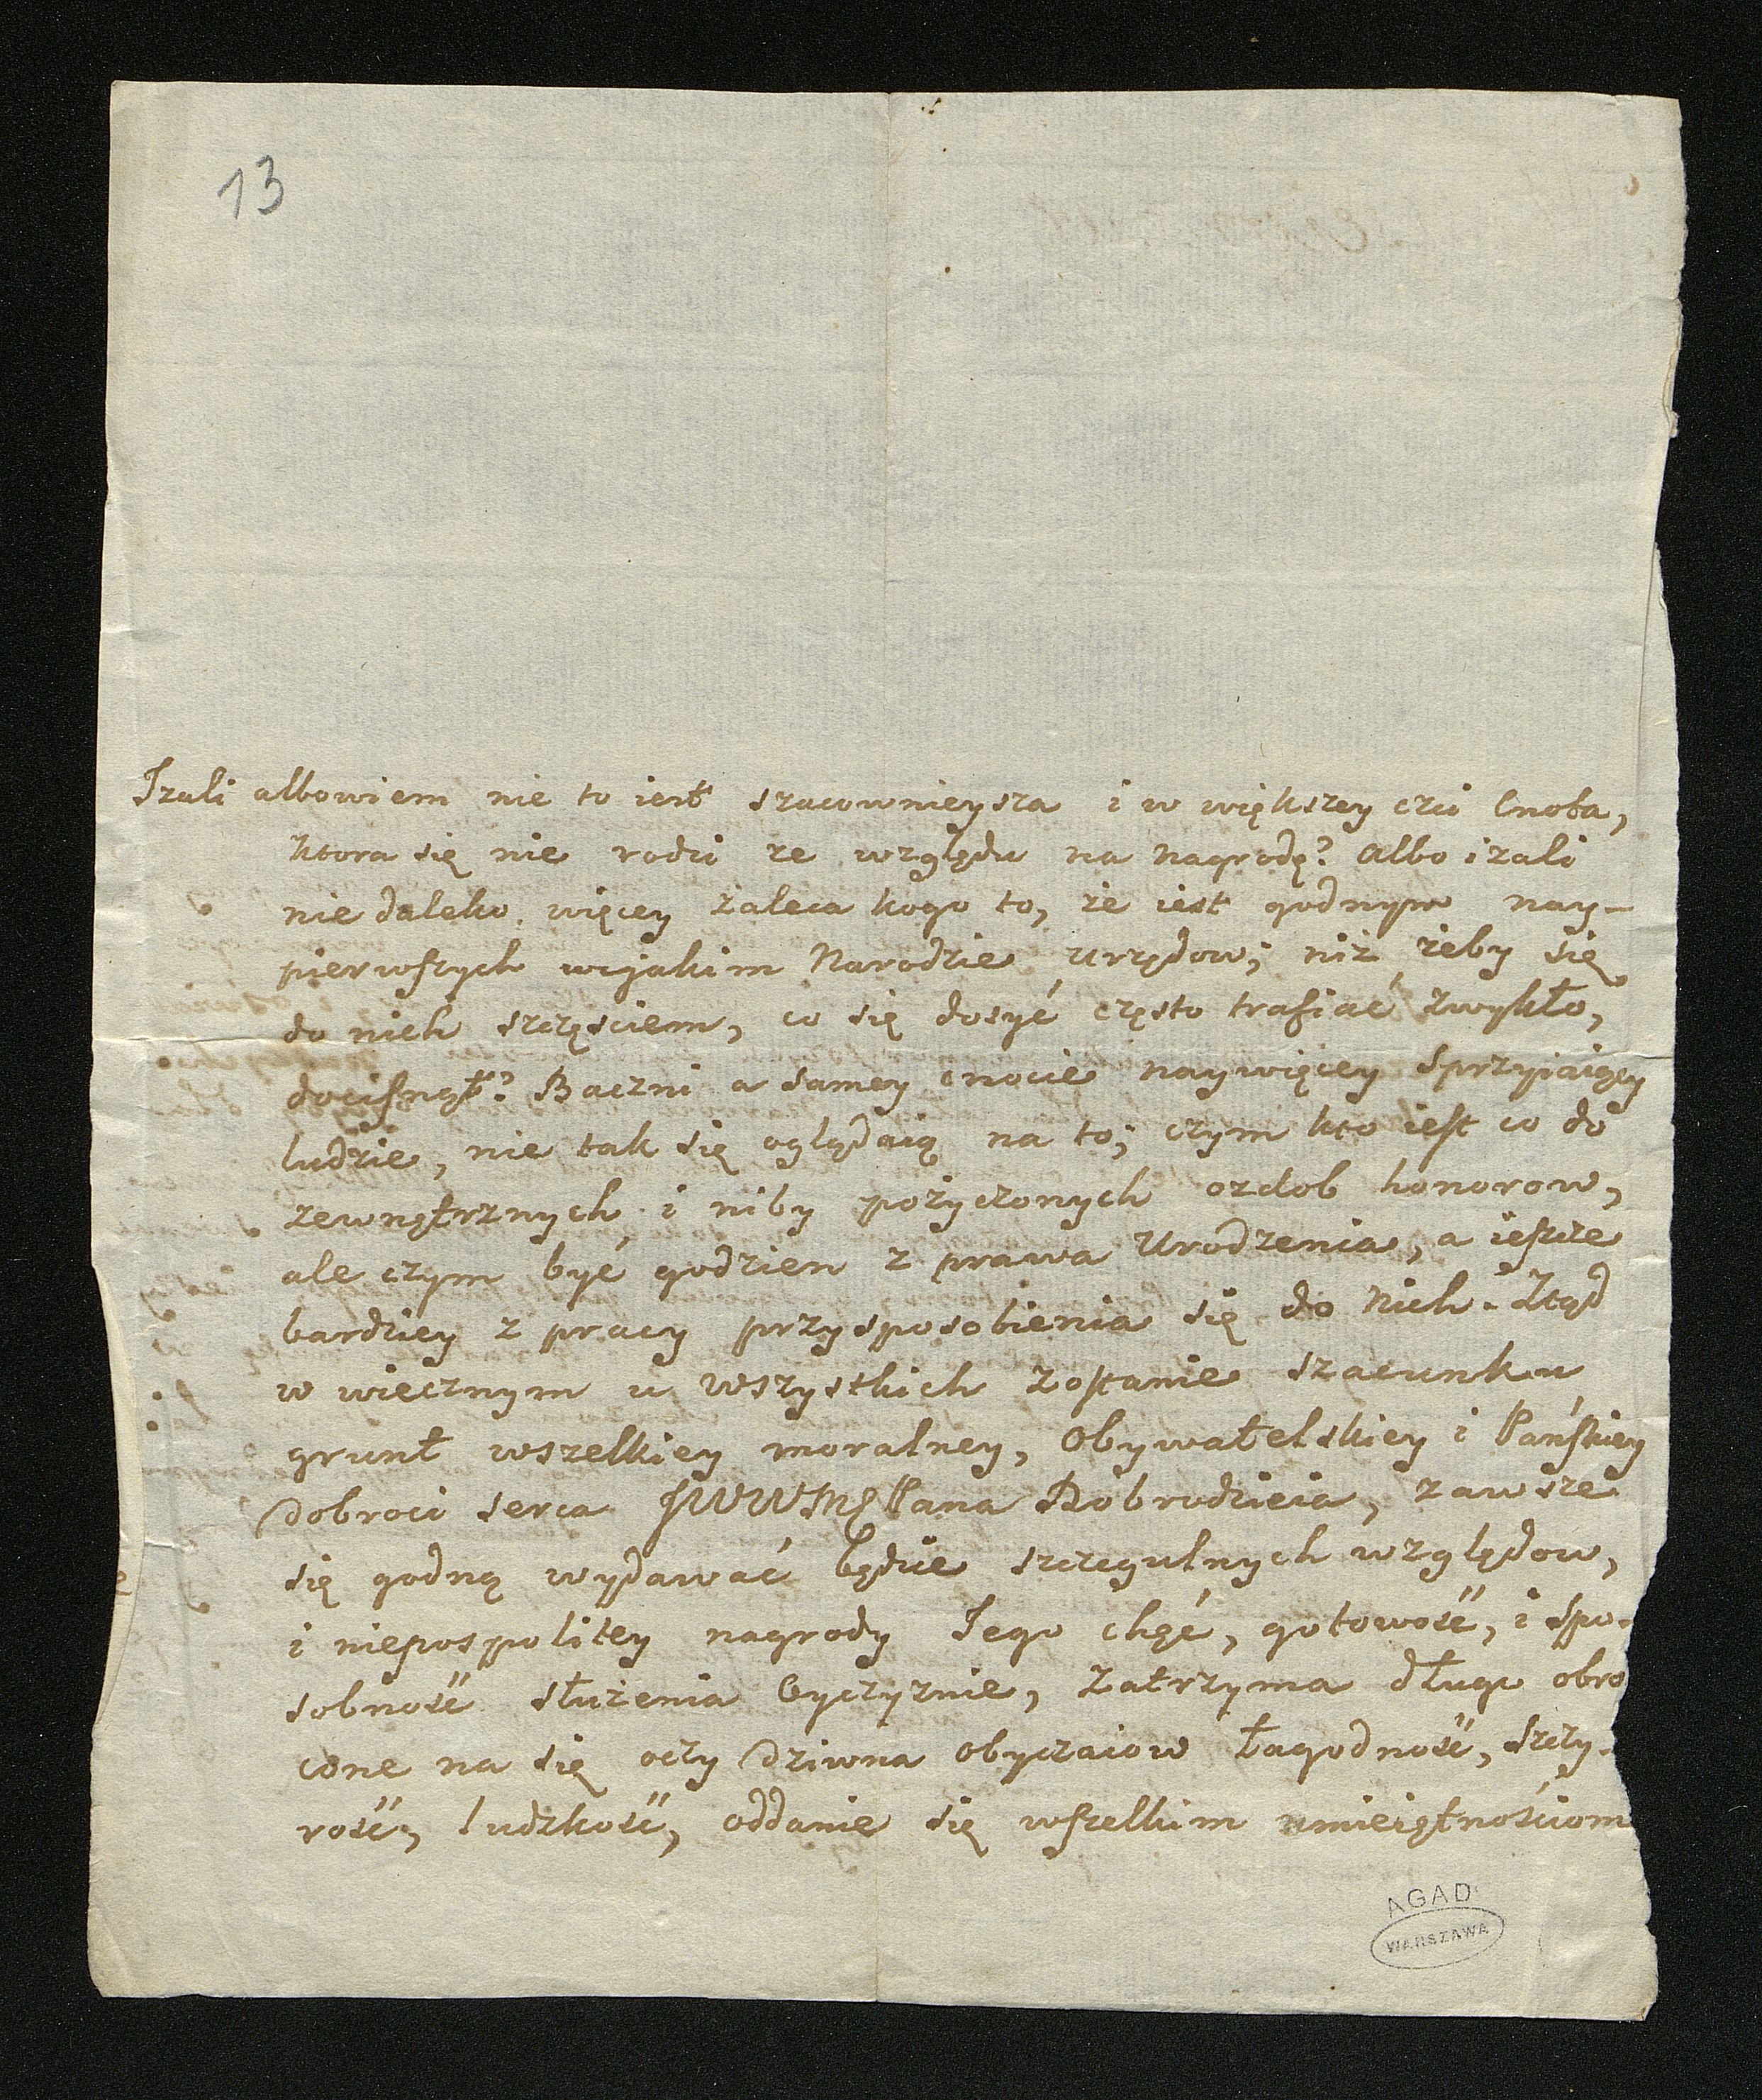 13
Izali albowiem nie to iest szacownieysza i w większey czci Cnota,
ktora się nie rodzi ze względu na nagrodę? Albo izali
nie daleko więcey zaleca kogo to, że iest godnym nay-
pierwszych w jakim Narodzie Urzędow; niż żeby się
do nich szczęściem, co się dosyć często trafiać zwykło,
docisnął? Baczni a samey cnocie naywięcey sprzyiaiący
ludzie, nie tak się oglądaią na to; czym kto iest co do
zewnętrznych i niby pożyczonych ozdob honorow,
ale czym być godzien z prawa Urodzenia, a ieszcze
bardziey z pracy przysposobienia się do Nich. Ztąd
w wiecznym u wszystkich zostanie szacunku
grunt wszelkiey moralney, Obywatelskiey i Pańskiey
dobroci serca JWWMC Pana Dobrodzieia, zawsze
się godną wydawać będzie szczegulnych względow,
i niepospolitey nagrody Jego chęć, gotowość, i spo-
sobność służenia Oyczyznie, zatrzyma długo obro
cone na się oczy dziwna obyczaiow łagodność, szczy-
rość, ludzkość, oddanie się wszelkim umieiętnościom
AGAD
WARSZAWA